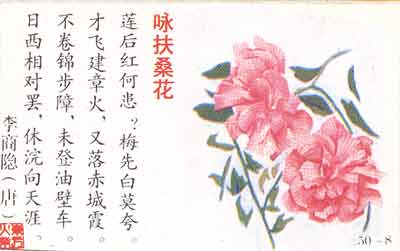 咏扶桑花
莲后红何患？梅先白莫夸。
才飞建章火，又落赤城霞。
不卷锦步障，未登油壁车。
日西相对罢，休浣向天涯。
李商隐（唐）
50－8